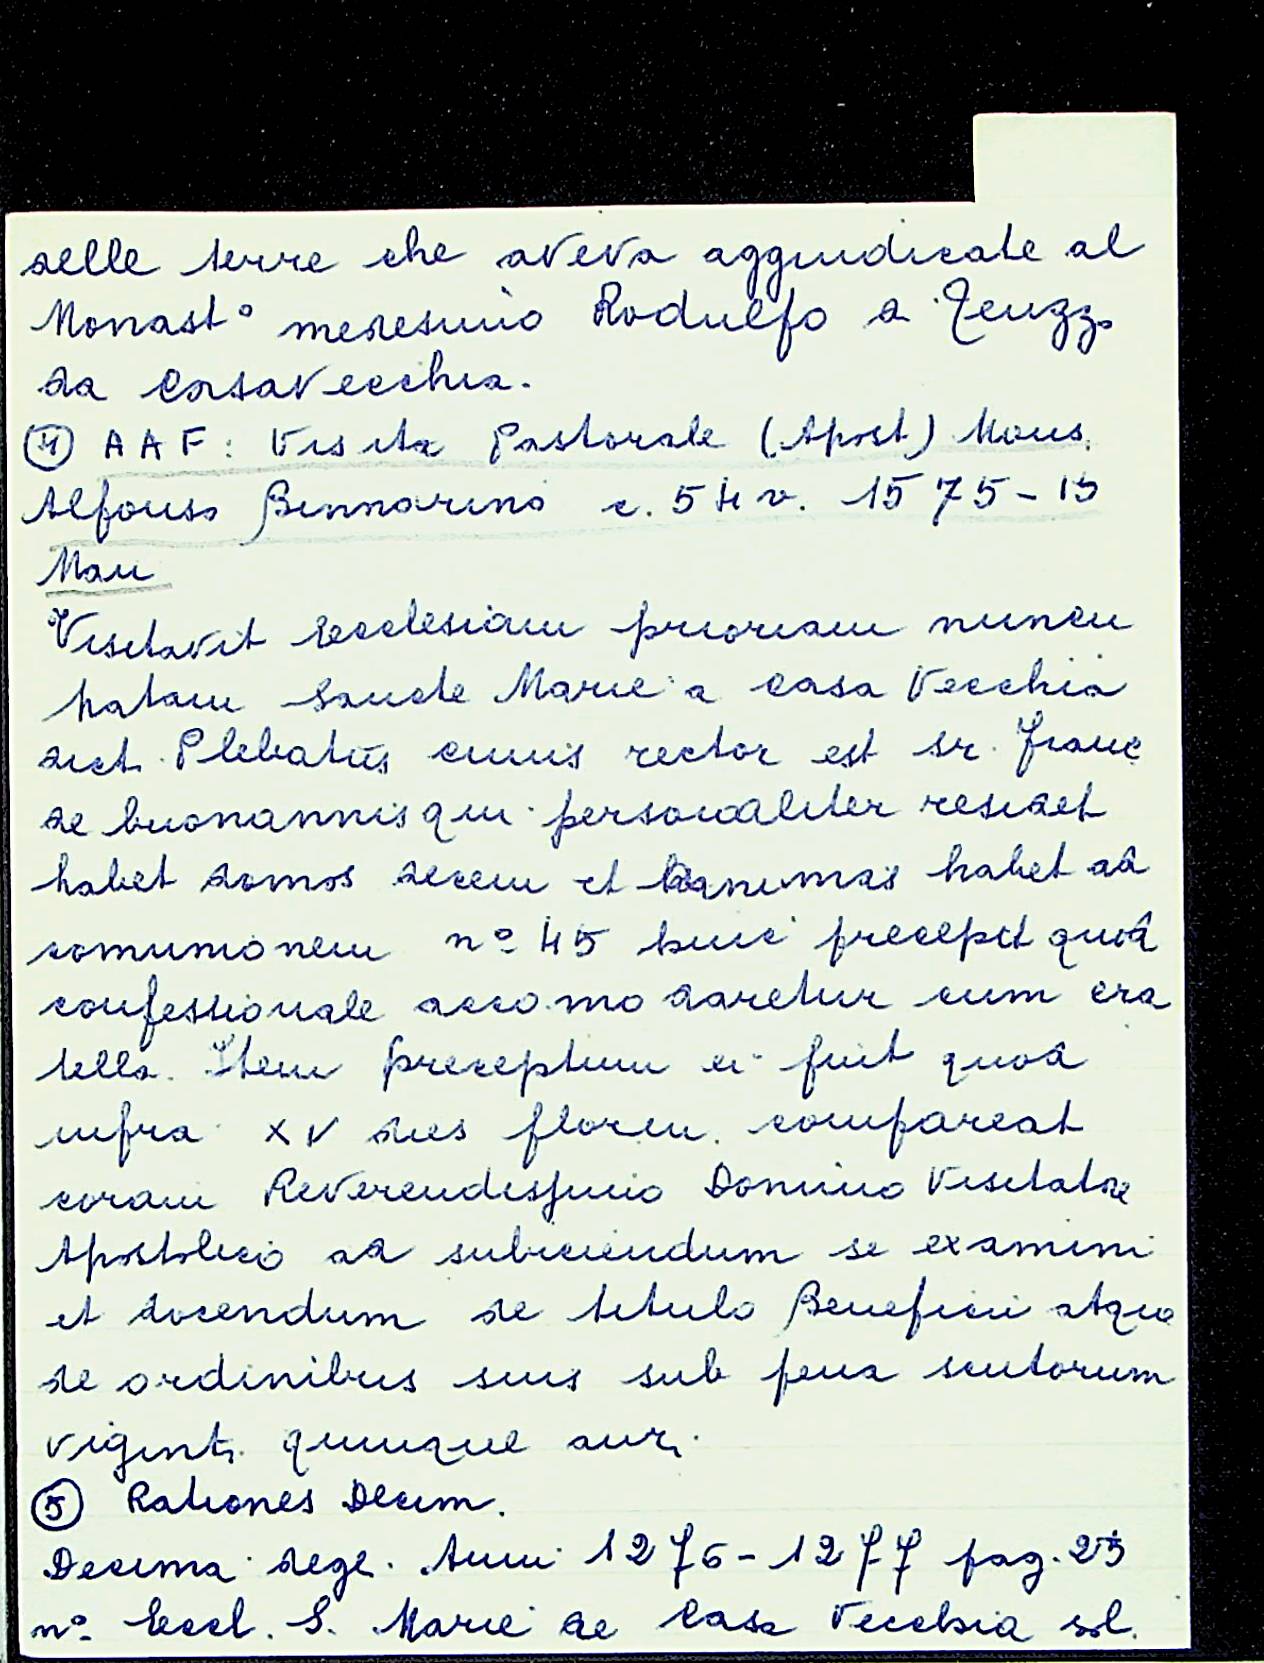 delle terre che aveva aggiudicate al
Monast° medesimo Rodulfo d. Teuzz.
da Casavecchia.
④ AAF: Visita Pastorale (Apost) Mons.
Alfonso Binnarino c. 54 v. 1575-15
Man
Visitavit Ecclesiam prioriam nuncu
patam Sancte Marie a Casa Vecchia
dict. Plebatus cuius rector est sr. Franc
de buonannis qui personaliter residet
habet domos decem et animas habet ad
comunionem n° 45 huic precepit quod
confessionale accomodaretur cum cra
tella. Item preceptum ei fuit quod
infra XV dies floren. compareat
coram Reverendissimo Domino Visitatore
Apostolico ad subiciendum se examini
et docendum de titulo Beneficii atque
de ordinibus suis sub pena scutorum
viginti quinque aur.
⑤ Rationes Decim.
Decima degl. Anni 1276-1277 pag. 25
n° Eccl. S. Marie de Casa Vecchia sol.